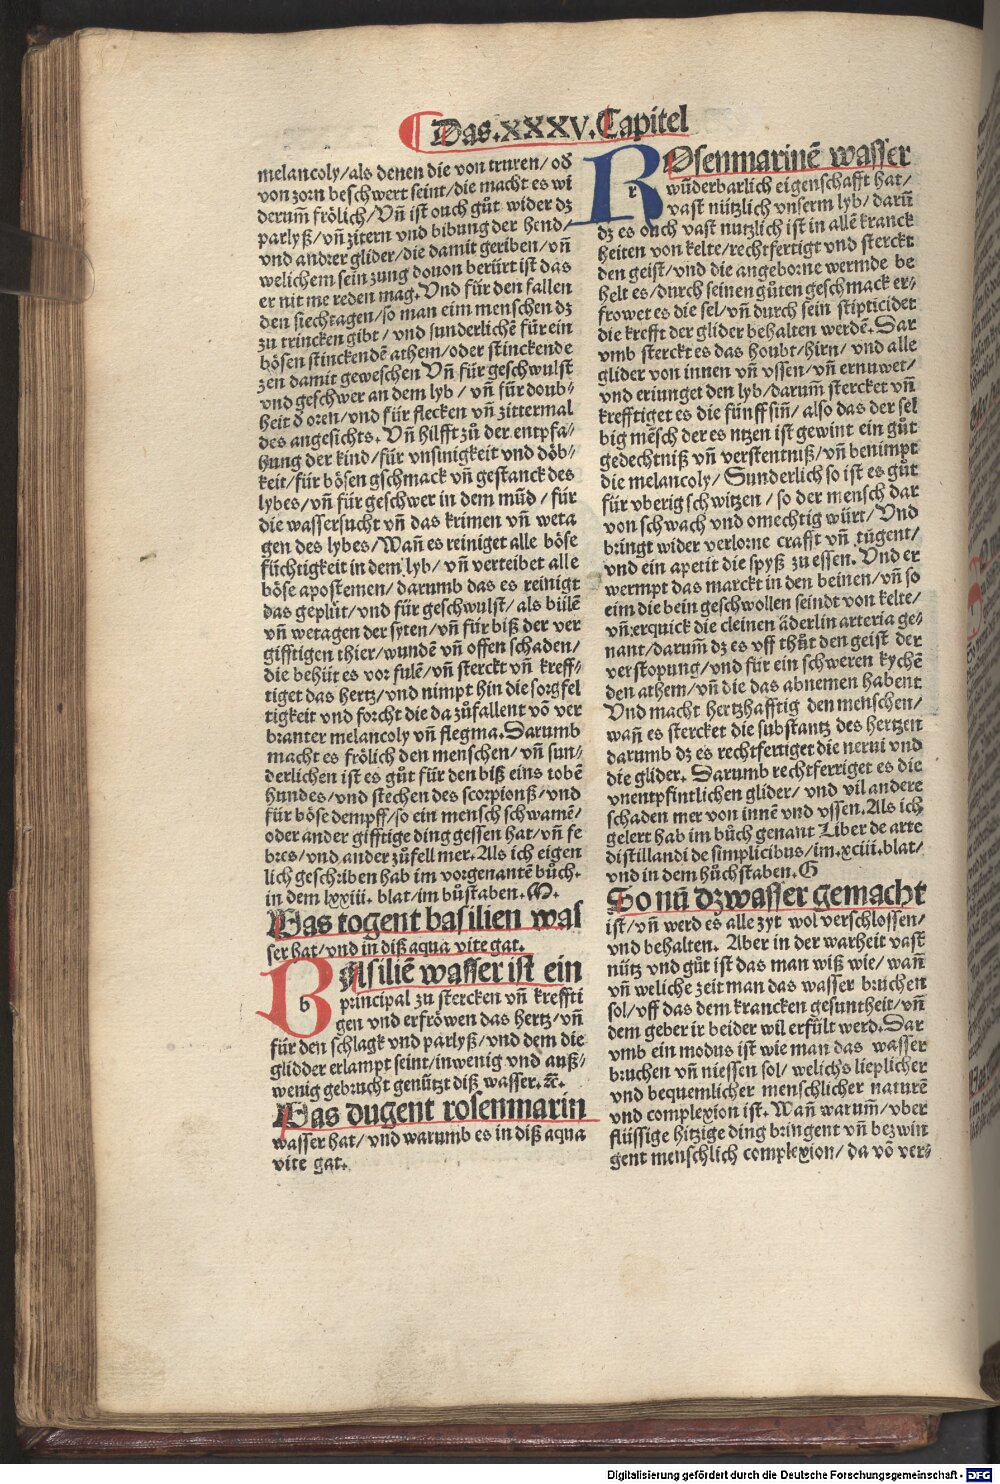 Das.XXXV.Capitel
melancoly/als denen die von truren/od
von zorn beschwert seint/die macht es wi
derum̃ frölich/Vñ ist ouch gůt wider dz
parlyß/vñ zitern vnd bibung der hend/
vnd andrer glider/die damit geriben/vñ
welichem sein zung douon berürt ist das
er nit me reden mag. Vnd für den fallen
den siechtagen/so man eim menschen dz
zu trincken gibt/vnd sunderlichē für ein
bösen stinckendē athem/oder stinckende
zen damit geweschen Vñ für geschwulst
vnd geschwer an dem lyb/vñ für doub⸗
heit d oren/vnd für flecken vñ zittermal
des angesichts. Vñ hilfft zů der entpfa⸗
hung der kind/für vnsinigkeit vnd döb⸗
keit/für bösen gschmack vñ gestanck des
lybes/vñ für geschwer in dem mūd/für
die wassersucht vñ das krimen vñ weta
gen des lybes/Wañ es reiniget alle böse
füchtigkeit in dem lyb/vñ verteibet alle
böse apostemen/darumb das es reinigt
das geplüt/vnd für geschwulst/als bülē
vñ wetagen der syten/vñ für biß der ver
gifftigen thier/wundē vñ offen schaden/
die behüt es vor fulē/vñ sterckt vñ kreff⸗
tiget das hertz/vnd nimpt hin die sorgfel
tigkeit vnd forcht die da zůfallent vō ver
branter melancoly vñ flegma. Darumb
macht es frölich den menschen/vñ sun⸗
derlichen ist es gůt für den biß eins tobē
hundes/vnd stechen des scorpionß/vnd
für böse dempff/so ein mensch schwamē/
oder ander gifftige ding gessen hat/vñ fe
bres/vnd ander zůfell mer. Als ich eigen
lich geschriben hab im vorgenantē bůch.
in dem lxxiii. blat/im bůstaben. M.
Was togent basilien was
ser hat/vnd in diß aqua vite gat.
b
BAsiliē wasser ist ein
principal zu stercken vñ kreffti
gen vnd erfröwen das hertz/vñ
für den schlagk vnd parlyß/vnd dem die
glidder erlampt seint/inwenig vnd auß⸗
wenig gebrucht genützt diß wasser. ⁊c.
Was dugent rosenmarin
wasser hat/vnd warumb es in diß aqua
vite gat.
r
ROsenmarinē wasser
wūderbarlich eigenschafft hat/
vast nützlich vnserm lyb/darum̃
dz es ouch vast nutzlich ist in allē kranck
heiten von kelte/rechtfertigt vnd sterckt
den geist/vnd die angeborne wermde be
helt es/durch seinen gůten geschmack er⸗
frowet es die sel/vñ durch sein stipticidet
die krefft der glider behalten werdē. Dar
vmb sterckt es das houbt/hirn/vnd alle
glider von innen vñ vssen/vñ ernuwet/
vnd eriunget den lyb/darum̃ stercket vñ
krefftiget es die fünff sin̄/also das der sel
big mēsch der es ntzen ist gewint ein gůt
gedechtniß vñ verstentniß/vñ benimpt
die melancoly/Sunderlich so ist es gůt
für vberig schwitzen/so der mensch dar
von schwach vnd omechtig würt/Vnd
bringt wider verlorne crafft vñ tůgent/
vnd ein apetit die spyß zu essen. Vnd er
wermpt das marckt in den beinen/vñ so
eim die bein geschwollen seindt von kelte/
vñ:erquick die cleinen äderlin arteria ge⸗
nant/darum̃ dz es vff thůt den geist der
verstopung/vnd für ein schweren kychē
den athem/vñ die das abnemen habent
Vnd macht hertzhafftig den menschen/
wañ es stercket die substantz des hertzen
darumb dz es rechtfertiget die nerui vnd
die glider. Darumb rechtferriget es die
vnentpfintlichen glider/vnd vil andere
schaden mer von innē vnd vssen. Als ich
gelert hab im bůch genant Liber de arte
distillandi de simplicibus/im.xciii.blat/
vnd in dem hůchstaben. G
So nū dz wasser gemacht
ist/vñ werd es alle zyt wol verschlossen/
vnd behalten. Aber in der warheit vast
nütz vnd gůt ist das man wiß wie/wañ
vñ weliche zeit man das wasser bruchen
sol/vff das dem krancken gesuntheit/vñ
dem geber ir beider wil erfült werd. Dar
vmb ein modus ist wie man das wasser
bruchen vñ niessen sol/welichs lieplicher
vnd bequemlicher menschlicher naturē
vnd complexion ist. Wañ warum̃/vber
flüssige hitzige ding bringent vñ bezwin
gent menschlich complexion/da vō ver⸗
Digitalisierung gefördert durch die Deutsche Forschungsgemeinschaft - DFG